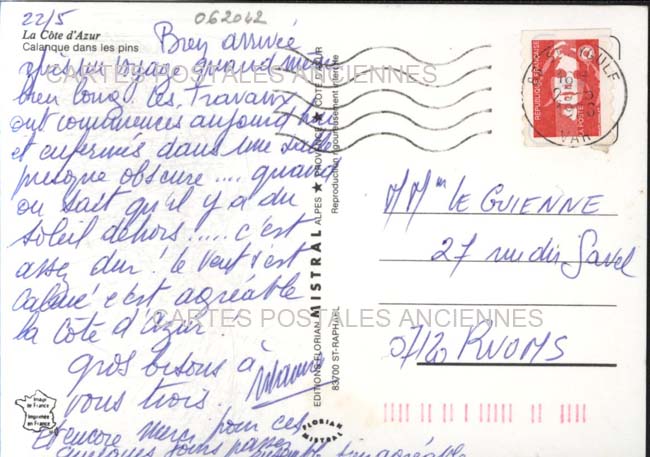 22/5
062042
La Côte d'Azur
Calanque dans les pins
Bien arrivée
voyage quand même
bien long. Les Travaux
ont commencés aujourd'hui
et enfermés dans une salle
presque obscure.... quand
on sait qu'il y a du
soleil dehors..... c'est
assez dur! le vent s'est
calmé c'est agréable
la Côte d'Azur.
gros bisous à
vous trois.
Et encore merci pour ces
quelques jours passés
ensemble
CARTES POSTALES ANCIENNES
CARTES POSTALES ANCIENNES
EDITIONS FLORIAN MISTRAL ALPES ★ PROVENCE ★ COTE D'AZUR
83700 ST-RAPHAEL
Reproduction rigoureusement interdite
FLORIAN MISTRAL
Image de France
Imprimée en France
REPUBLIQUE FRANÇAISE
LA POSTE
VAR
LE GUIENNE
27
07120 RUOMS